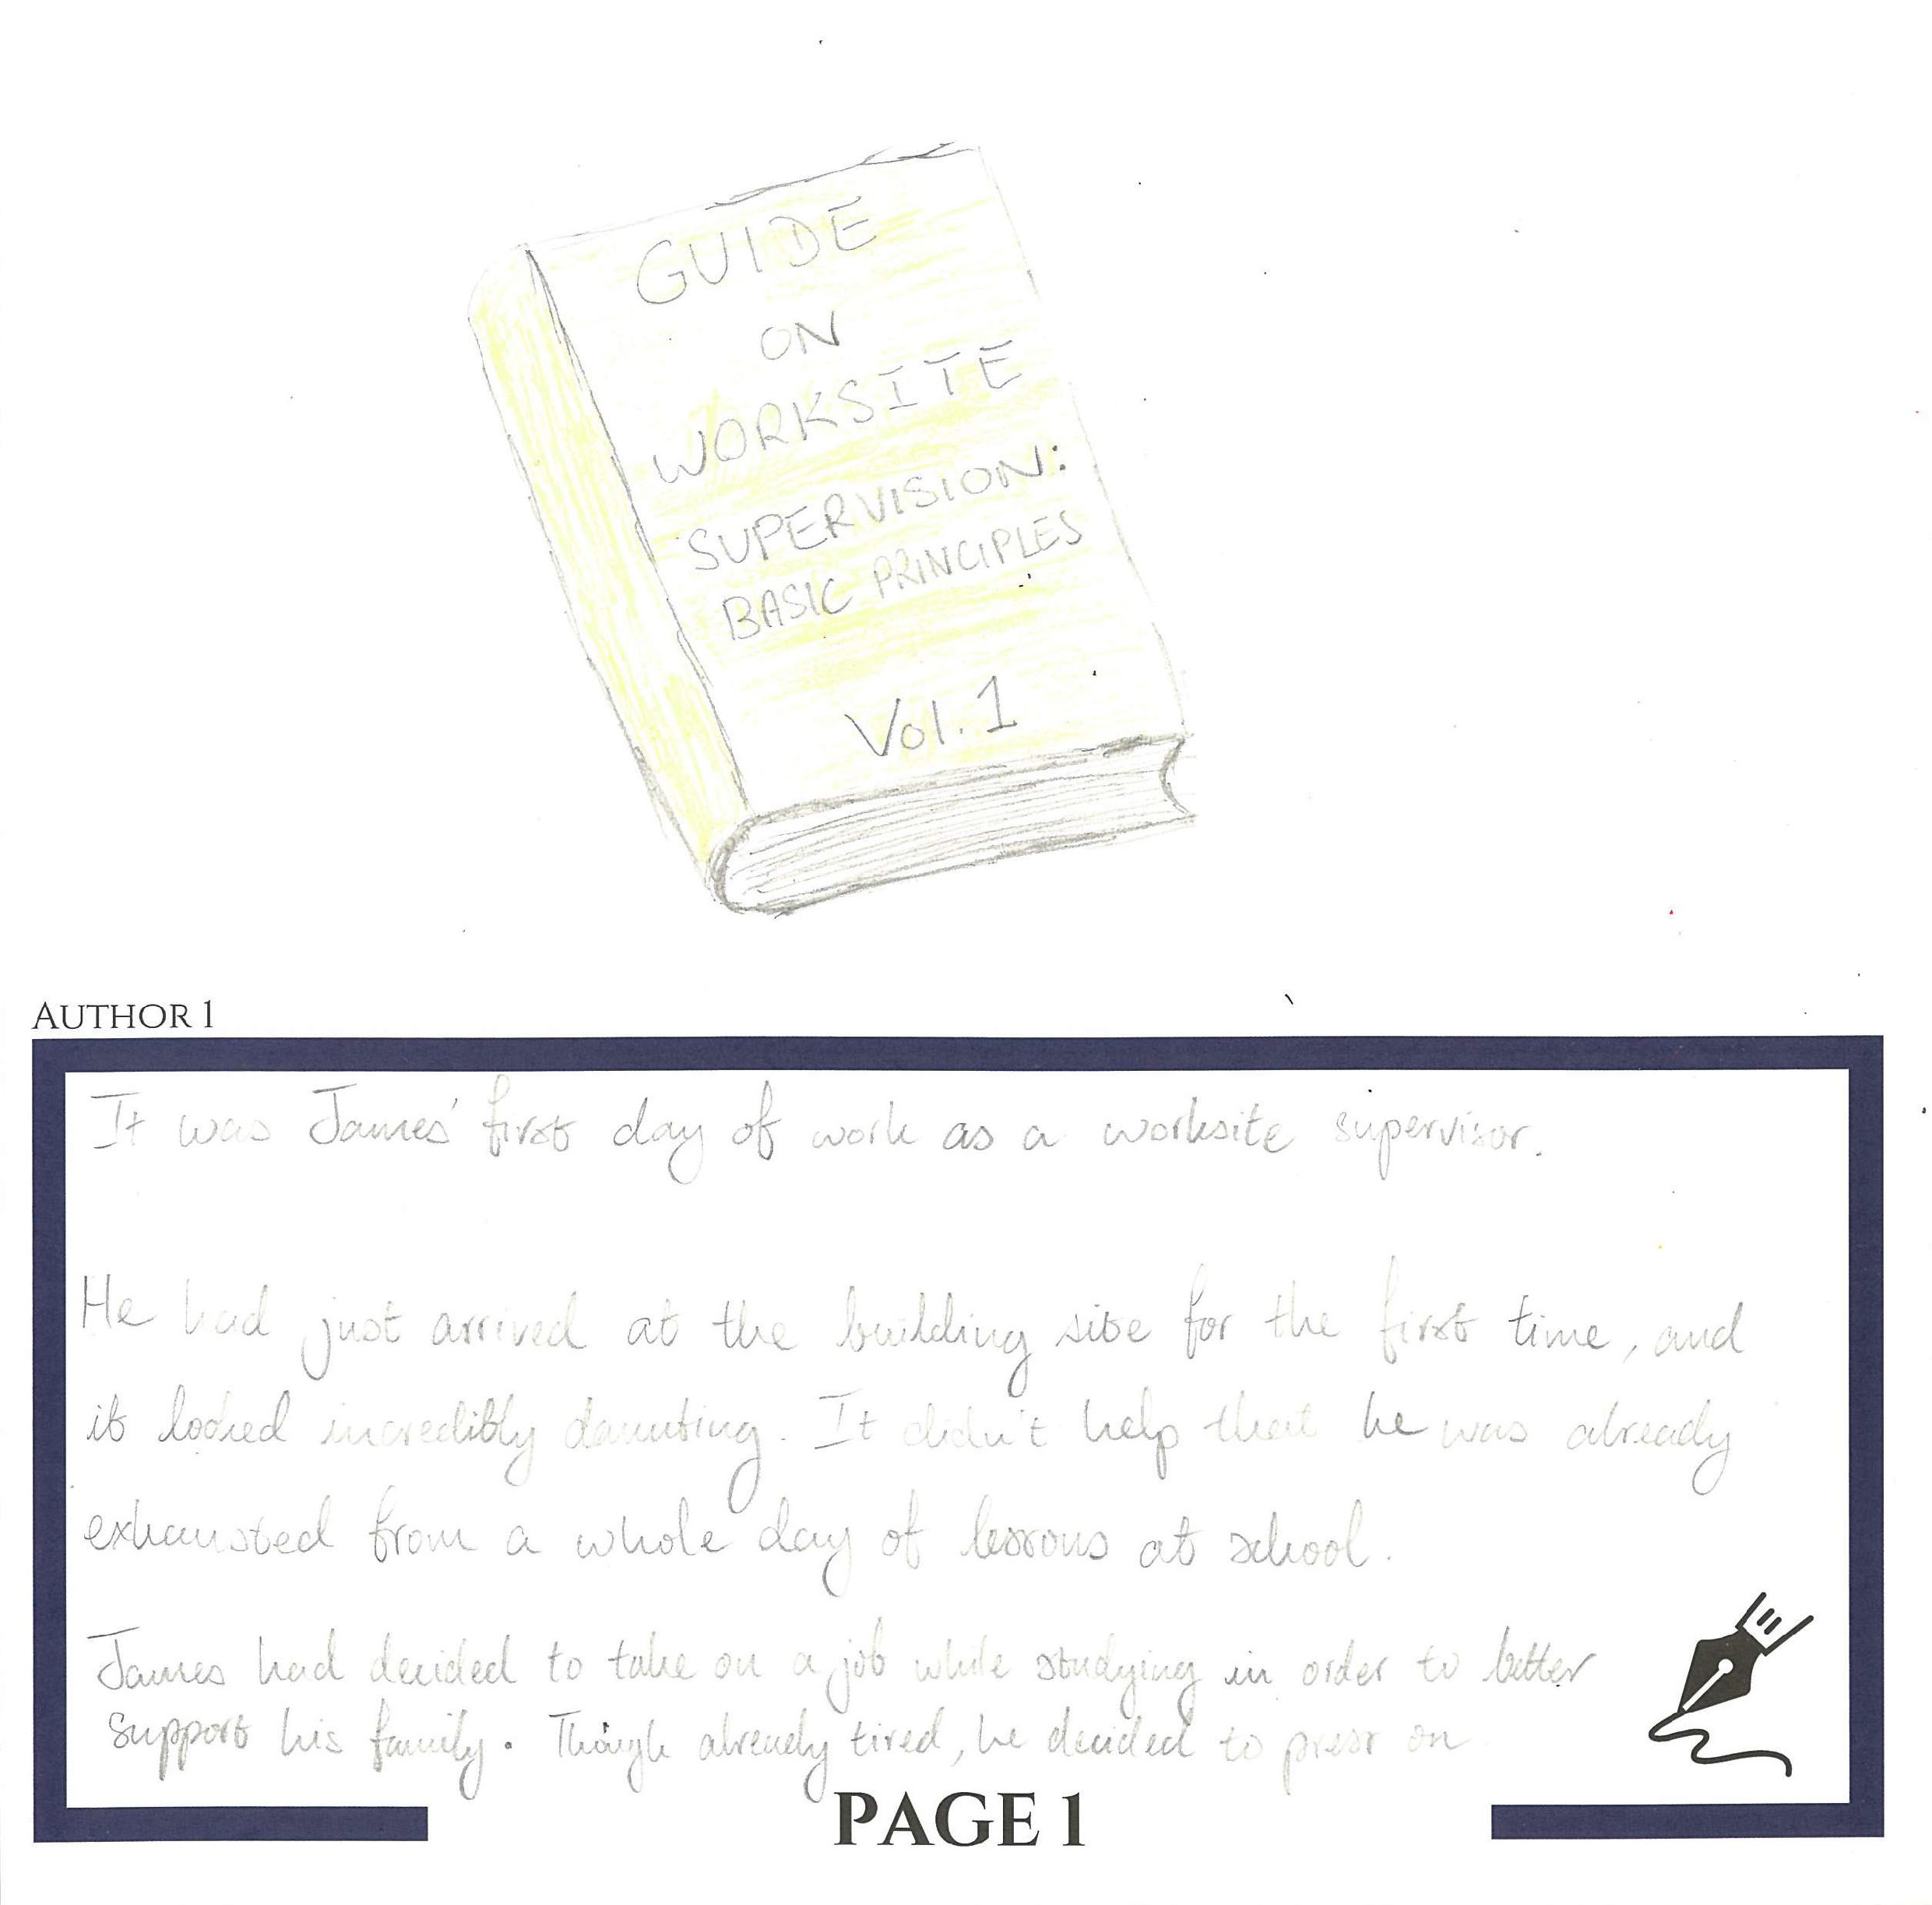 GUIDE
ON
WORKSITE
SUPERVISION:
BASIC PRINCIPLES
Vol. 1
AUTHOR 1
It was James' first day of work as a worksite supervisor.
He had just arrived at the building site for the first time, and
it looked incredibly daunting. It didn't help that he was already
exhausted from a whole day of lessons at school.
James had decided to take on a job while studying in order to better
support his family. Though already tired, he decided to press on
PAGE 1